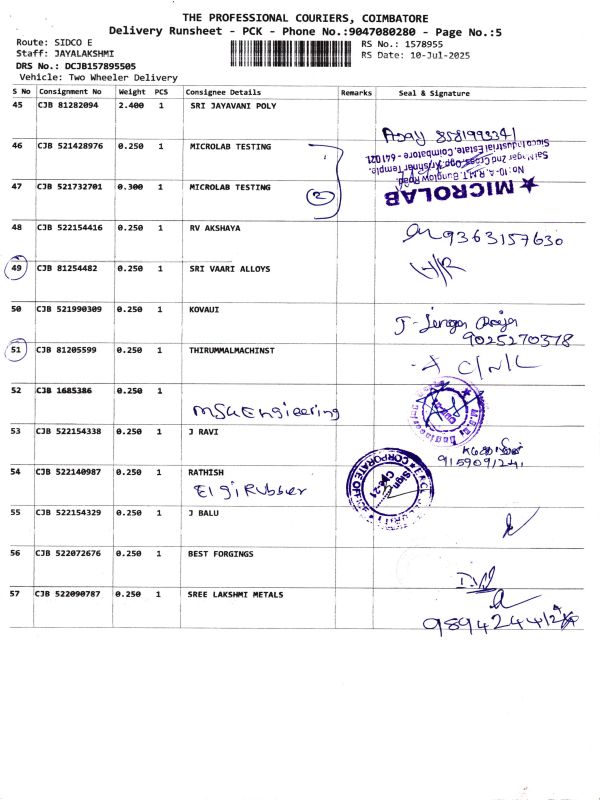 THE PROFESSIONAL COURIERS, COIMBATORE
Delivery Runsheet - PCK - Phone No.:9047080280 - Page No.:5
Route: SIDCO E RS No.: 1578955
Staff: JAYALAKSHMI RS Date: 10-Jul-2025
DRS No.: DCJB157895505
Vehicle: Two Wheeler Delivery
S No Consignment No Weight PCS Consignee Details Remarks Seal & Signature
45 CJB 81282094 2.400 1 SRI JAYAVANI POLY
Ajay 8581993341
46 CJB 521428976 0.250 1 MICROLAB TESTING
47 CJB 521732701 0.300 1 MICROLAB TESTING 2
★ MICROLAB
No:10-A, R.M.T. Bunglow Road,
Sai Nagar 2nd Cross, Opp. Krishnar Temple,
Sidco Industrial Estate, Coimbatore - 641 021.
48 CJB 522154416 0.250 1 RV AKSHAYA
9363157630
49 CJB 81254482 0.250 1 SRI VAARI ALLOYS
H/R
50 CJB 521990309 0.250 1 KOVAUI
9025270378
51 CJB 81205599 0.250 1 THIRUMMALMACHINST
C/N/L
52 CJB 1685386 0.250 1
MSG Engineering
53 CJB 522154338 0.250 1 J RAVI
9159091241
54 CJB 522140987 0.250 1 RATHISH
Elgi Rubber
CORPORATE OFFICE
Sign
55 CJB 522154329 0.250 1 J BALU
56 CJB 522072676 0.250 1 BEST FORGINGS
57 CJB 522090787 0.250 1 SREE LAKSHMI METALS